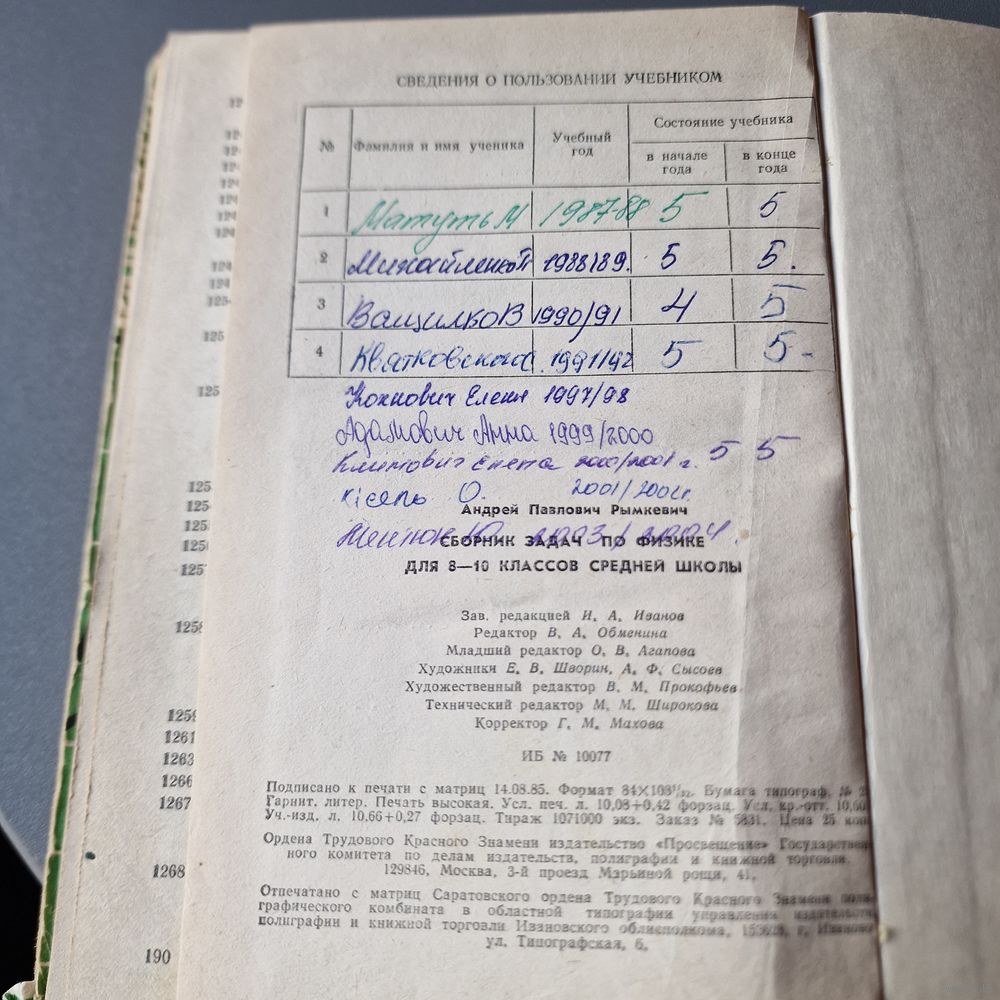 СВЕДЕНИЯ О ПОЛЬЗОВАНИИ УЧЕБНИКОМ
№ Фамилия и имя ученика Учебный год Состояние учебника
в начале года в конце года
1 Матуть М 1987-88 5 5
2 Михайленко 1988/89. 5 5.
3 Ващилко В 1990/91 4 5
4 1991/92 5 5-
Елена 1997/98
Адамович Анна 1999/2000
Климович 2000/2001 г. 5 5
Кісель О. 2001/2002г.
Андрей Павлович Рымкевич
Ю 2003/2004.
СБОРНИК ЗАДАЧ ПО ФИЗИКЕ
ДЛЯ 8—10 КЛАССОВ СРЕДНЕЙ ШКОЛЫ
Зав. редакцией И. А. Иванов
Редактор В. А. Обменина
Младший редактор О. В. Агапова
Художники Е. В. Шворин, А. Ф. Сысоев
Художественный редактор В. М. Прокофьев
Технический редактор М. М. Широкова
Корректор Г. М. Махова
ИБ № 10077
Подписано к печати с матриц 14.08.85. Формат 84×108¹/₃₂. Бумага типограф. № 2
Гарнит. литер. Печать высокая. Усл. печ. л. 10,08+0,42 форзац. Усл. кр.-отт. 10,60
Уч.-изд. л. 10,66+0,27 форзац. Тираж 1071000 экз. Заказ № 5831. Цена 25 коп
Ордена Трудового Красного Знамени издательство «Просвещение» Государствен
ного комитета по делам издательств, полиграфии и книжной торговли.
129846, Москва, 3-й проезд Марьиной рощи, 41.
Отпечатано с матриц Саратовского ордена Трудового Красного Знамени поли
графического комбината в областной типографии управления издательств,
полиграфии и книжной торговли Ивановского облисполкома, г. Иваново
ул. Типографская, 6.
1259
1261
1263
1266
1267
1268
190